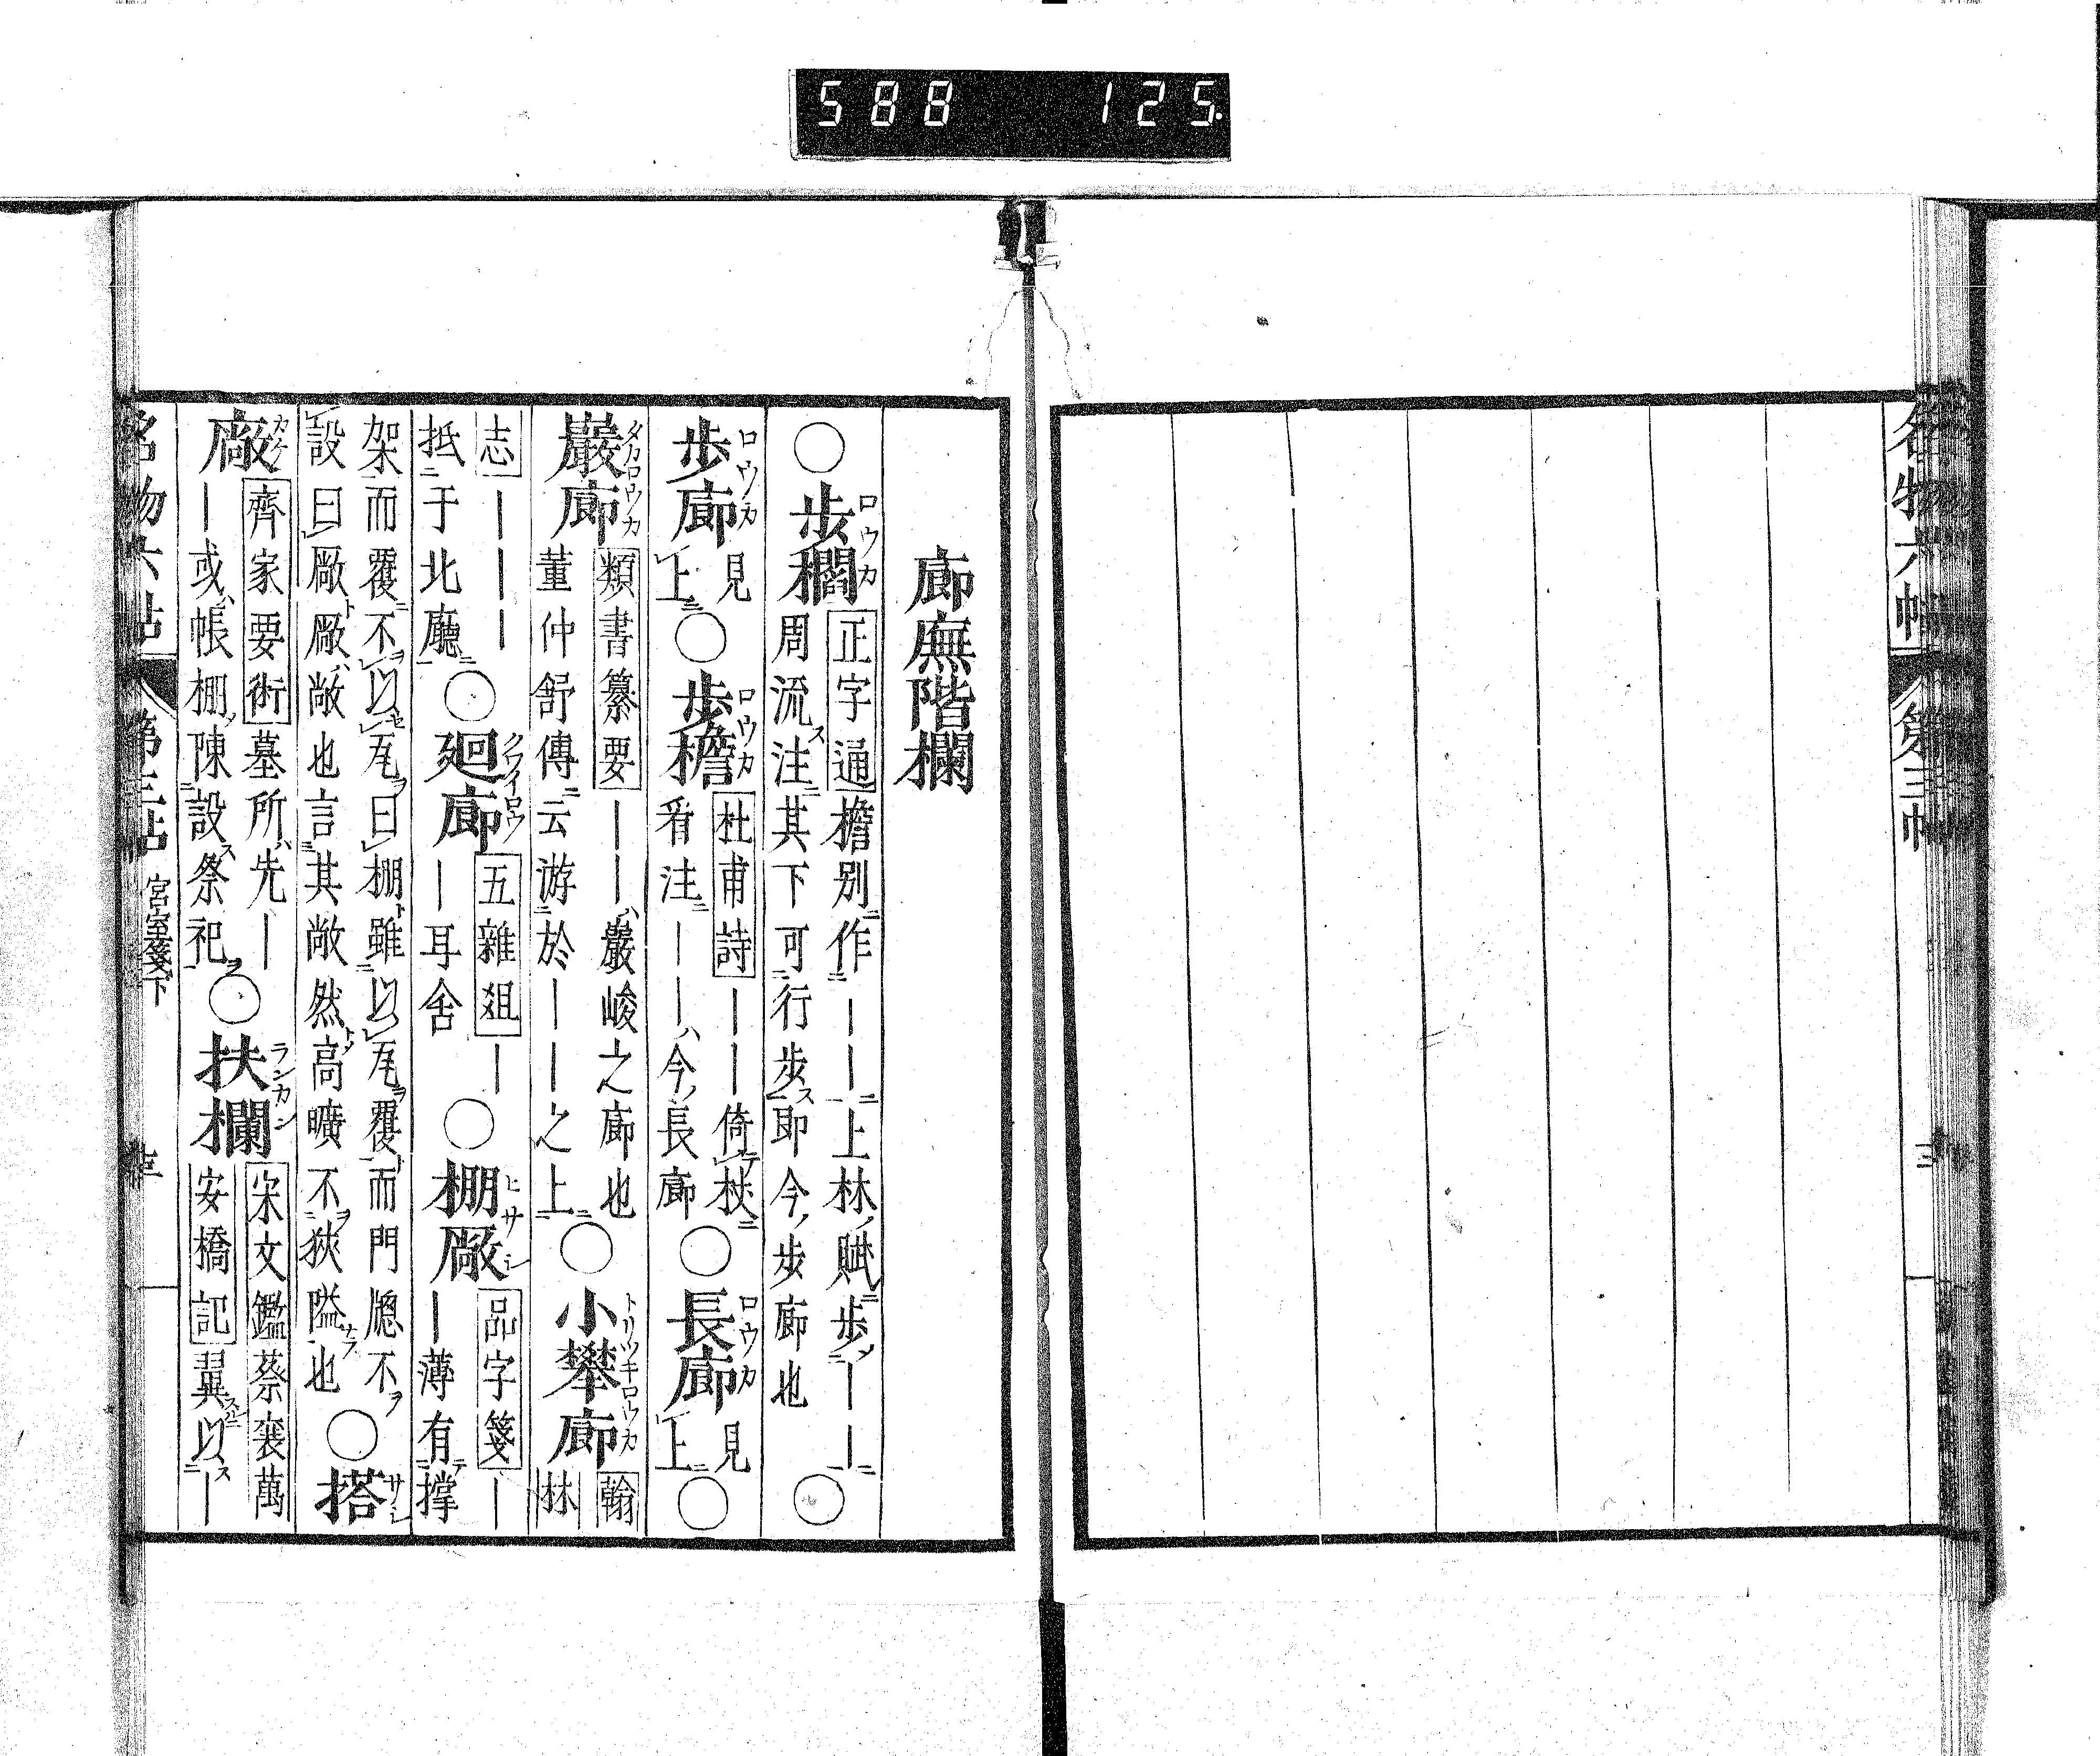 588 125.
名物六帖 第三帖 三
廊廡階欄
○步櫩 ロウカ 正字通 檐別作――上林賦步――
周流注其下可行步即今步廊也 ○
步廊 ロウカ 見上 ○步檐 ロウカ 杜甫詩 ――倚杖
看注――今長廊 ○長廊 ロウカ 見上 ○
巖廊 タカロウカ 類書纂要 ――巖峻之廊也
董仲舒傳云游於――之上 ○小攀廊 トリツキロウカ 翰林
志 ―――
抵于北廳 ○廻廊 クワイロウ 五雜俎 ―
―耳舍 ○棚厰 ヒサシ 品字箋 ―
―薄有撑
架而覆不以瓦曰棚雖以瓦覆而門牕不
設曰厰厰敞也言其敞然高曠不狹隘也 ○搭 サシ
廠 カケ 齊家要術 墓所先―
―或帳棚陳設祭祀 ○扶欄 ランカン 宋文鑑 蔡襄萬
安橋記 翼以―
名物六帖 第三帖 宮室箋下